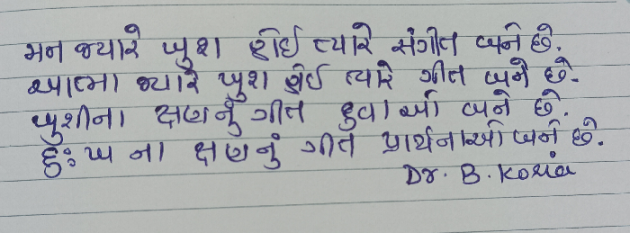 મન જ્યારે ખુશ હોઈ ત્યારે સંગીત બને છે.
આત્મા જ્યારે ખુશ હોઈ ત્યારે ગીત બને છે.
ખુશીના ક્ષણનું ગીત દુવાઓ બને છે.
દુઃખ ના ક્ષણનું ગીત પ્રાર્થનાઓ બને છે.
Dr. B. Koria